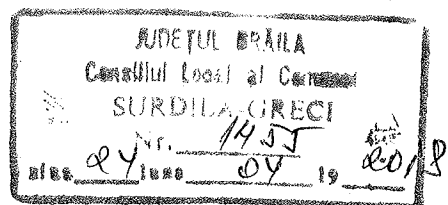 JUDEȚUL BRĂILA
Consiliul Local al Comunei
SURDILA-GRECI
Nr. 1455
ziua 24 luna 04 19 2018